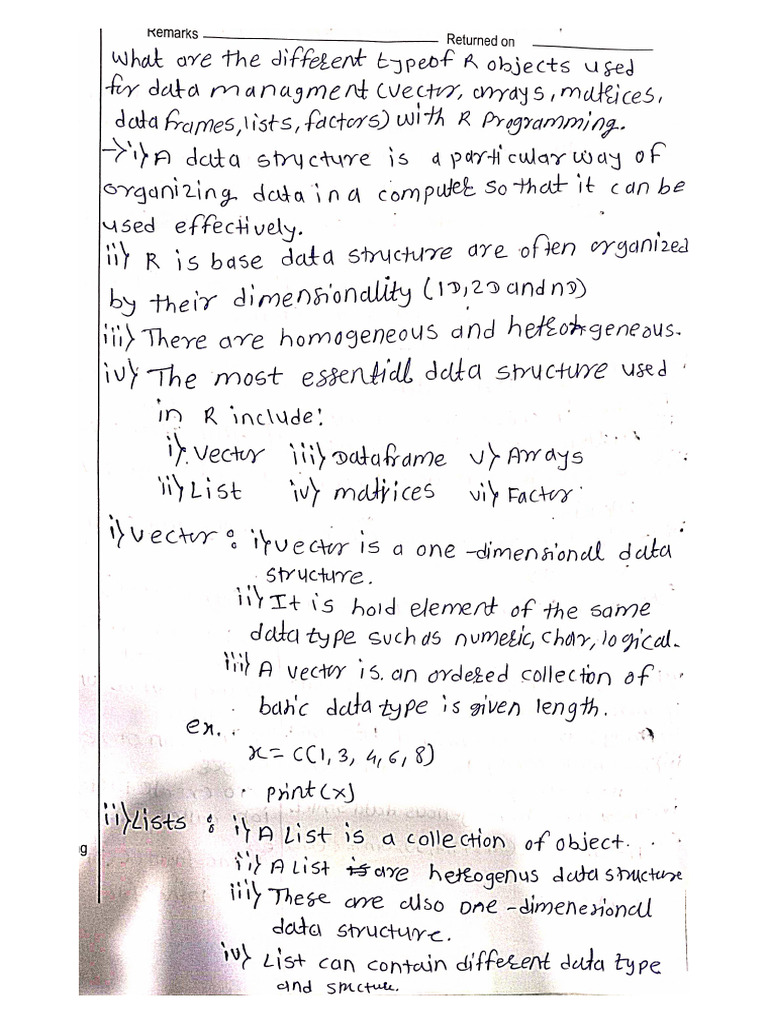 Remarks
Returned on
What are the different type of R objects used
for data managment (vector, arrays, matrices,
data frames, lists, factors) with R Programming.
→ i) A data structure is a particular way of
organizing data in a computer so that it can be
used effectively.
ii) R is base data structure are often organized
by their dimensionality (1D, 2D and nD)
iii) There are homogeneous and heterogeneous.
iv) The most essential data structure used
in R include:
i) Vector iii) Dataframe v) Arrays
ii) List iv) matrices vi) Factor
i) Vector : i) Vector is a one-dimensional data
structure.
ii) It is hold element of the same
data type such as numeric, char, logical.
iii) A vector is an ordered collection of
basic data type is given length.
ex.
x = C(1, 3, 4, 6, 8)
print(x)
ii) Lists : i) A List is a collection of object.
g
ii) A List are heterogenus data structure
iii) These are also one-dimenesional
data structure.
iv) List can contain different data type
and